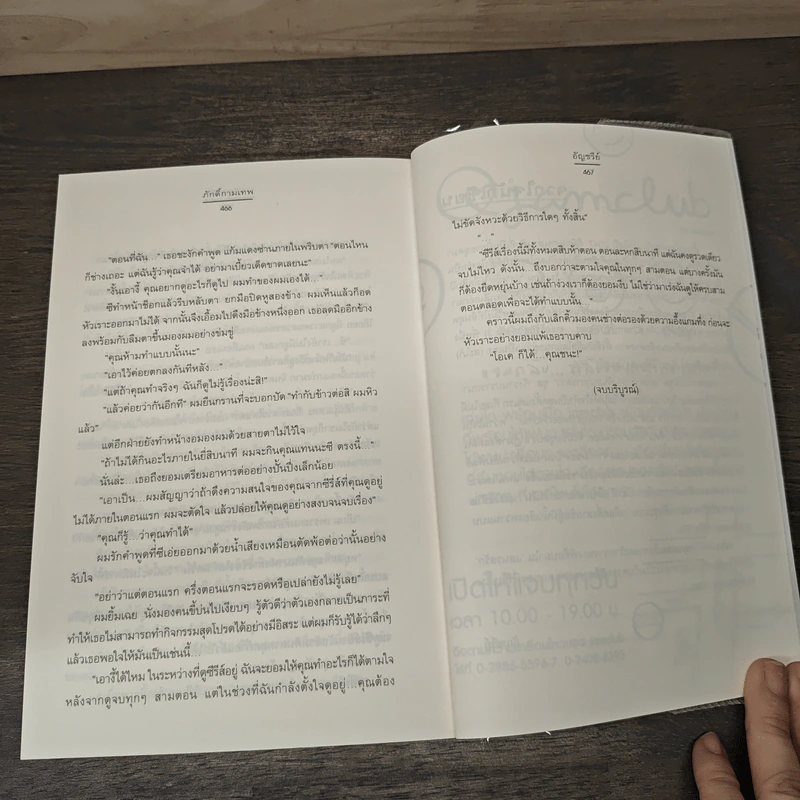 ภักดิ์กามเทพ
466
"ตอนที่ฉัน..." เธอชะงักคำพูด แก้มแดงซ่านภายในพริบตา "ตอนไหน
ก็ช่างเถอะ แต่ฉันรู้ว่าคุณจำได้ อย่ามาเบี้ยวเด็ดขาดเลยนะ"
"งั้นเอางี้ คุณอยากดูอะไรก็ดูไป ผมทำของผมเองได้..."
ซีทำหน้าช็อกแล้วรีบหลับตา ยกมือปิดหูสองข้าง ผมเห็นแล้วก็อด
หัวเราะออกมาไม่ได้ จากนั้นจึงเอื้อมไปดึงมือข้างหนึ่งออก เธอลดมืออีกข้าง
ลงพร้อมกับลืมตาขึ้นมองผมอย่างข่มขู่
"คุณห้ามทำแบบนั้นนะ"
"เอาไว้ค่อยตกลงกันทีหลัง..."
"แต่ถ้าคุณทำจริงๆ ฉันก็ดูไม่รู้เรื่องน่ะสิ!"
"แล้วค่อยว่ากันอีกที" ผมยืนกรานที่จะบอกปัด "ทำกับข้าวต่อสิ ผมหิว
แล้ว"
แต่อีกฝ่ายยังทำหน้างอมองผมด้วยสายตาไม่ไว้ใจ
"ถ้าไม่ได้กินอะไรภายในยี่สิบนาที ผมจะกินคุณแทนนะซี ตรงนี้..."
นั่นล่ะ...เธอถึงยอมเตรียมอาหารต่ออย่างปั้นปึ่งเล็กน้อย
"เอาเป็น...ผมสัญญาว่าถ้าดึงความสนใจของคุณจากซีรี่ส์ที่คุณดูอยู่
ไม่ได้ภายในตอนแรก ผมจะตัดใจ แล้วปล่อยให้คุณดูอย่างสงบจนจบเรื่อง"
"คุณก็รู้...ว่าคุณทำได้"
ผมรักคำพูดที่ซีเอ่ยออกมาด้วยน้ำเสียงเหมือนตัดพ้อต่อว่านั้นอย่าง
จับใจ
"อย่าว่าแต่ตอนแรก ครึ่งตอนแรกจะรอดหรือเปล่ายังไม่รู้เลย"
ผมยิ้มเฉย นั่งมองคนขี้บ่นไปเงียบๆ รู้ตัวดีว่าตัวเองกลายเป็นภาระที่
ทำให้เธอไม่สามารถทำกิจกรรมสุดโปรดได้อย่างมีอิสระ แต่ผมก็รับรู้ได้ว่าลึกๆ
แล้วเธอพอใจให้มันเป็นเช่นนี้...
"เอางี้ได้ไหม ในระหว่างที่ดูซีรี่ส์อยู่ ฉันจะยอมให้คุณทำอะไรก็ได้ตามใจ
หลังจากดูจบทุกๆ สามตอน แต่ในช่วงที่ฉันกำลังตั้งใจดูอยู่...คุณต้อง
อัญชรีย์
467
ไม่ขัดจังหวะด้วยวิธีการใดๆ ทั้งสิ้น"
"..."
"ซีรี่ส์เรื่องนี้มีทั้งหมดสิบห้าตอน ตอนละหกสิบนาที แต่ฉันคงดูรวดเดียว
จบไม่ไหว ดังนั้น...ถึงบอกว่าจะตามใจคุณในทุกๆ สามตอน แต่บางครั้งมัน
ก็ต้องยืดหยุ่นบ้าง เช่นถ้าง่วงเราก็ต้องยอมรับ ไม่ใช่ว่ามาเร่งฉันดูให้ครบสาม
ตอนตลอดเพื่อจะได้ทำแบบนั้น..."
คราวนี้ผมถึงกับเลิกคิ้วมองคนช่างต่อรองด้วยความอึ้งแกมทึ่ง ก่อนจะ
หัวเราะอย่างยอมแพ้เธอราบคาบ
"โอเค ก็ได้...คุณชนะ!"
(จบบริบูรณ์)